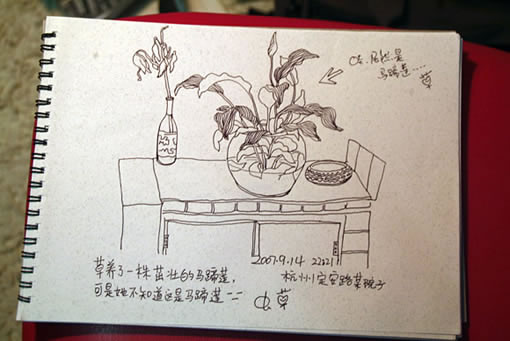 居然是
马蹄莲....
草
2007.9.14 22:21
草养了一株茁壮的马蹄莲,
杭州定安路菜院子
可是她不知道这是马蹄莲
虫.草